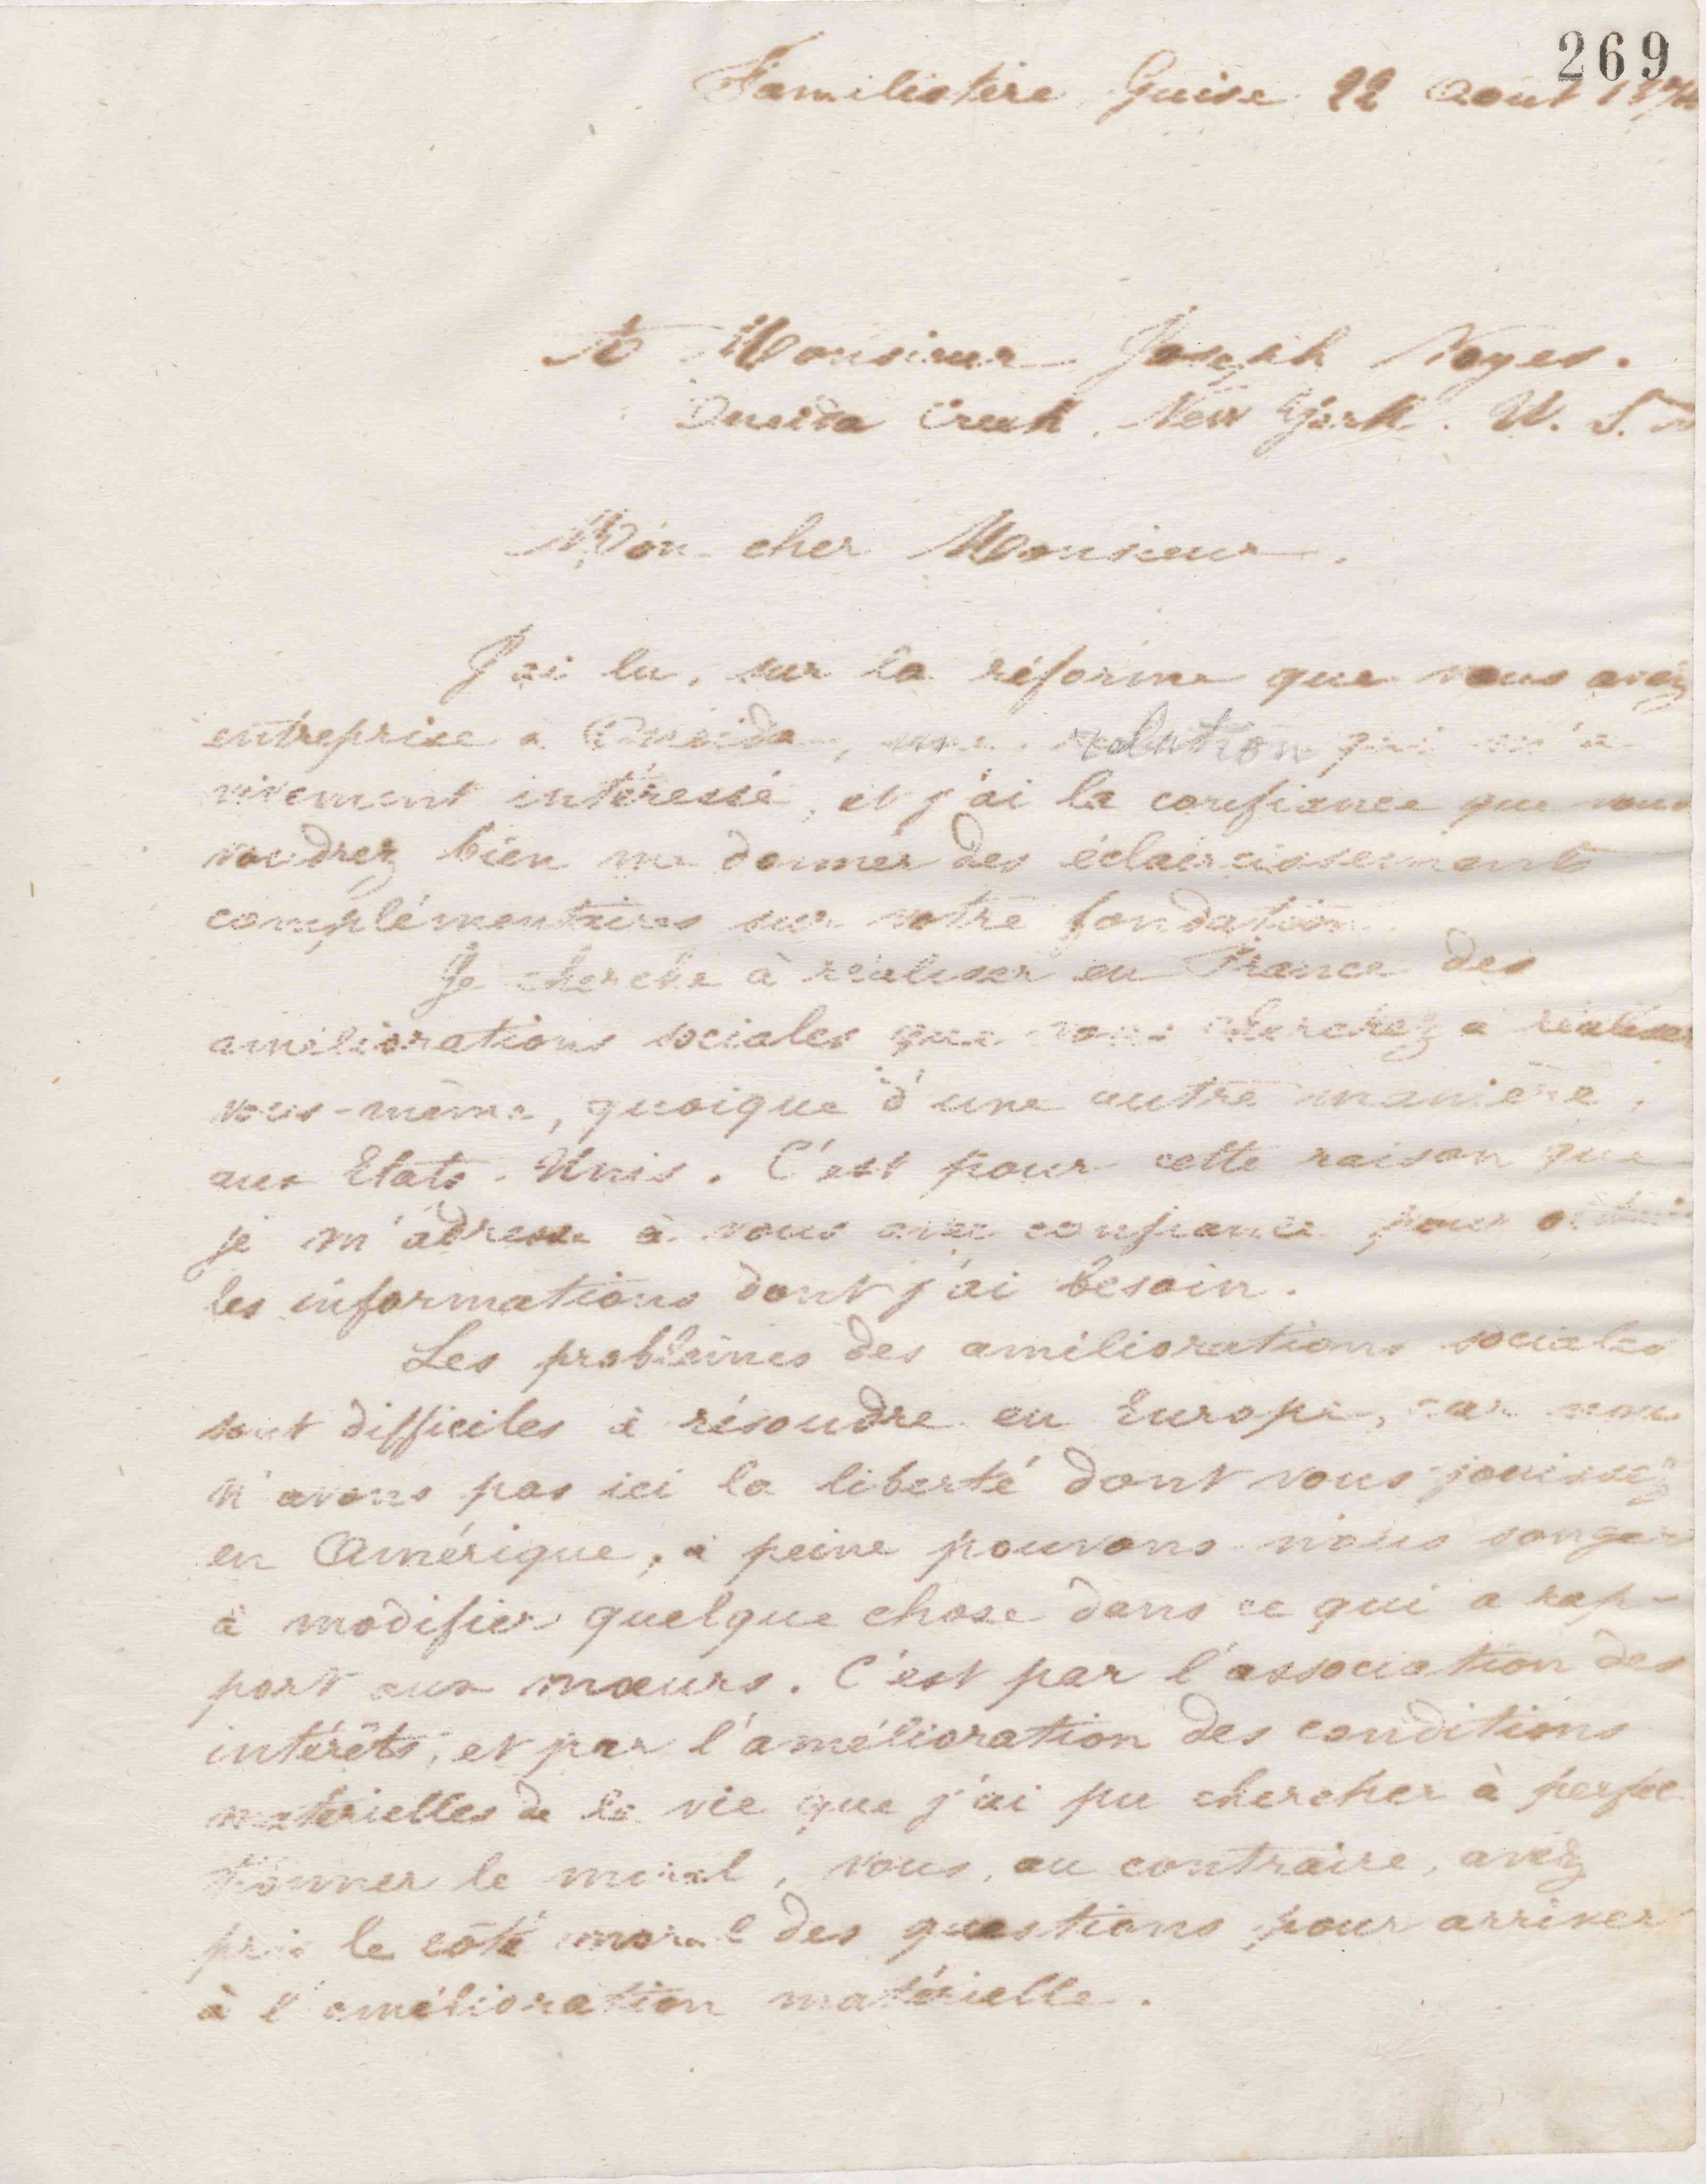 269
Familistère Guise 22 août 18
A Monsieur Joseph Noyes.
Oneida Creek. New York. U. S. A
Mon cher Monsieur.
J'ai lu, sur la réforme que vous avez
entreprise a Oneida, une relation qui m'a
vivement intéressé, et j'ai la confiance que vous
voudrez bien me donner des éclaircissements
complémentaires sur votre fondation.
Je cherche à réaliser en France des
améliorations sociales que vous cherchez a réaliser
vous-même, quoique d'une autre manière,
aux Etats-Unis. C'est pour cette raison que
je m'adresse à vous avec confiance pour
les informations dont j'ai besoin.
Les problèmes des améliorations sociales
sont difficiles à résoudre en Europe, car nous
n'avons pas ici la liberté dont vous jouissez
en Amérique, a peine pouvons nous songer
à modifier quelque chose dans ce qui a rap-
port aux mœurs. C'est par l'association des
intérêts, et par l'amélioration des conditions
matérielles de la vie que j'ai pu chercher à perfec
tionner le moral, vous, au contraire, avez
pris le côté moral des questions pour arriver
à l'amélioration matérielle.